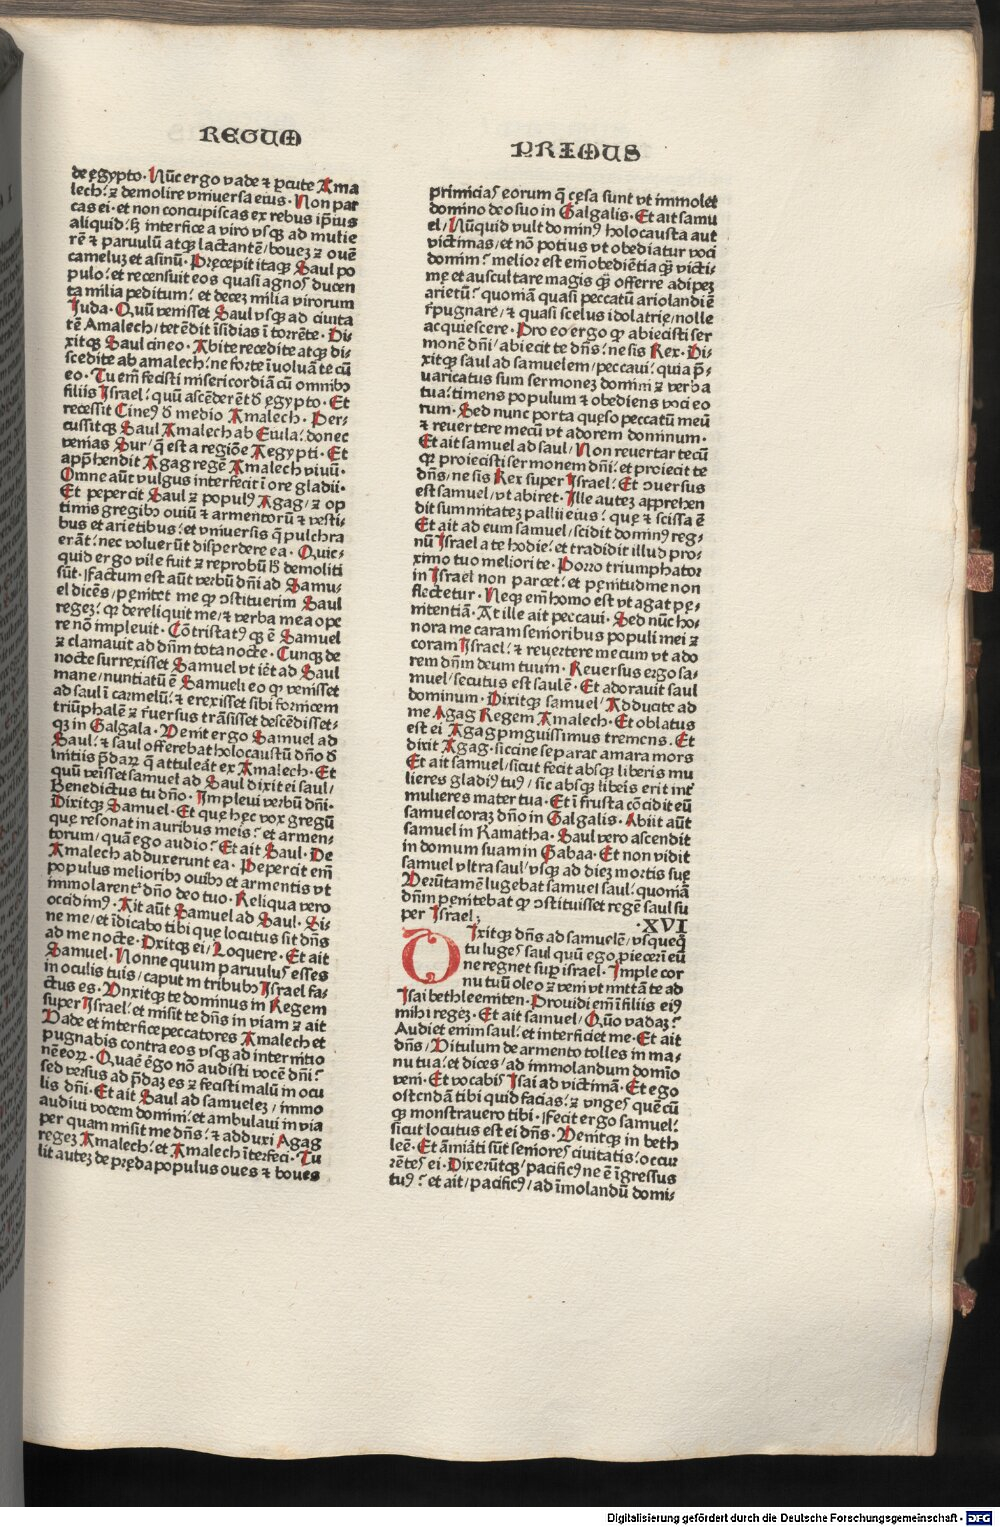 REGUM
de ęgypto · Nūc ergo vade ⁊ ꝑcute Ama
lech: ⁊ demolire vniuersa eius · Non par
cas ei · et non concupiscas ex rebus ip̄ius
aliquid: sꝫ interfice a viro vsqꝫ ad mulie
rē ⁊ paruulū atqꝫ lactantē / bouez ⁊ ouē
cameluꝫ et asinū · Pręcepit itaqꝫ Saul po
pulo: et recensuit eos quasi agnoſ ducen
ta milia peditum: et deceꝫ milia virorum
Iuda · Quū venisset Saul vsqꝫ ad ciuita
tē Amalech / tetēdit īsidias ī torrēte · Di-
xitqꝫ Saul cineo · Abite recedite atqꝫ di-
scedite ab amalech: ne forte īuoluā te cū
eo · Tu em̄ fecisti misericordiā cū omnibꝫ
filiis Israel: quū ascēderēt ð ęgypto · Et
recessit Cineꝰ ð medio Amalech · Per-
cussitqꝫ Saul Amalech ab Euila: donec
venias Sur / q̄ est a regiōe Aegypti · Et
app̄hendit Agag regē Amalech viuū ·
Omne aūt vulgus interfecit ī ore gladii ·
Et pepercit Saul ⁊ populꝰ Agag / ⁊ op
timis gregibꝫ ouiū ⁊ armentorū ⁊ vesti-
bus et arietibus: et vniuersis q̄ pulchra
erāt: nec voluerūt disperdere ea · Quic-
quid ergo vile fuit ⁊ reprobū hꝫ demoliti
sūt · Factum est aūt verbū dn̄i ad Samu-
el dicēs / pęnitet me ꝙ ↄstituerim Saul
regeꝫ: ꝙ dereliquit me / ⁊ verba mea ope
re nō impleuit · Cōtristatꝰ qꝫ ē Samuel
⁊ clamauit ad dn̄m tota nocte · Cunqꝫ de
nocte surrexisset Samuel vt iēt ad Saul
mane / nuntiatū ē Samueli eo ꝙ venisset
ad saul ī carmelū: ⁊ erexisset sibi fornicem
triūphalē ⁊ r̄uersus trāsisset descēdisset-
qꝫ in Galgala · Venit ergo Samuel ad
Saul: ⁊ saul offerebat holocaustū dn̄o ð
initiis p̄daꝝ q̄ attuleāt ex Amalech · Et
quū veīsset samuel ad Saul dixit ei saul /
Benedictus tu dn̄o · Impleui verbū dn̄i ·
Dixitqꝫ Samuel · Et quę hęc vox gregū
quę resonat in auribus meis: et armen-
torum / quā ego audio? Et ait Saul · De
Amalech adduxerunt ea · Pepercit em̄
populus melioribꝫ ouibꝫ et armentis vt
immolarent dn̄o deo tuo · Reliqua vero
occidimꝰ · Ait aūt Samuel ad Saul · Si-
ne me / et īdicabo tibi quę locutus sit dn̄s
ad me nocte · Dixitqꝫ ei / Loquere · Et ait
Samuel · Nonne quum paruuluſ esses
in oculis tuis / caput in tribubꝫ Israel fa-
ctus es · Vnxitqꝫ te dominus in Regem
super Israel: et misit te dn̄s in viam ⁊ ait
Vade et interfice peccatores Amalech et
pugnabis contra eos vsqꝫ ad internitio
nē eoꝝ · Quaē ēgo nō audisti vocē dn̄i?
sed versus ad p̄daꝫ es ⁊ fecisti malū in ocu
lis dn̄i · Et ait Saul ad samueleꝫ / immo
audiui vocem domini: et ambulaui in via
per quam misit me dn̄s: ⁊ adduxi Agag
regeꝫ Amalech: et Amalech īterfeci · Tu
lit auteꝫ de pręda populus oues ⁊ boues
PRIMUS
primiciaſ eorum q̄ cęsa sunt vt immolet
domino deo suo in Galgalis · Et ait samu
el / Nūquid vult dominꝰ holocausta aut
victimas / et nō potius vt obediatur voci
domini: melior est em̄ obediētia qꝫ victi-
mę et auscultare magis qꝫ offerre adipeꝫ
arietū: quomā quasi peccatū ariolandi ē
r̄pugnare / ⁊ quasi scelus idolatrię / nolle
acquiescere · Pro eo ergo ꝙ abiecisti ser
monē dn̄i / abiecit te dn̄s: ne sis Rex · Di-
xitqꝫ saul ad samuelem / peccaui: quia p̄-
uaricatus sum sermoneꝫ domini ⁊ verba
tua: timens populum ⁊ obediens voci eo
rum · Sed nunc porta quęso peccatū meū
⁊ reuertere mecū vt adorem dominum ·
Et ait samuel ad saul / Non reuertar tecū
ꝙ proiecisti sermonem dn̄i: et proiecit te
dn̄s / ne sis Rex super Israel: Et ↄuersus
est samuel / vt abiret · Ille auteꝫ apprehen
dit summitateꝫ pallii eius: quę ⁊ scissa ē
Et ait ad eum samuel / scidit dominꝰ reg-
nū Israel a te hodie: et tradidit illud pro-
ximo tuo meliori te · Porro triumphator
in Israel non parcet: et pęnitudine non
flectetur · Neqꝫ em̄ homo est vt agat pę-
nitentiā · At ille ait peccaui · Sed nūc ho-
nora me caram senioribus populi mei ⁊
coram Israel: ⁊ reuertere mecum vt ado
rem dn̄m deum tuum · Reuersus ergo sa-
muel / secutus est saulē · Et adorauit saul
dominum · Dixitqꝫ samuel / Adducite ad
me Agag Regem Amalech · Et oblatus
est ei Agag pinguissimus tremens · Et
dixit Agag · siccine separat amara mors
Et ait samuel / sicut fecit absqꝫ liberis mu
lieres gladiꝰ tuꝰ / sic absqꝫ libeīs erit int̄
mulieres mater tua · Et ī frusta cōcidit eū
samuel coraꝫ dn̄o in Galgalis · Abiit aūt
samuel in Ramatha · Saul vero ascendit
in domum suam in Gabaa · Et non vidit
samuel vltra saul / vsqꝫ ad dieꝫ mortis suę
Verūtamē lugebat samuel saul: quomā
dn̄m pęnitebat ꝙ ↄstituisset regē saul su
per Israel;
· XVI
DIxitqꝫ dn̄s ad samuelē / vsquequo
tu lugeſ saul quū ego ꝓiecerī eū
ne regnet suꝑ israel · Imple cor
nu tuū oleo ⁊ veni vt mittā te ad
Isai bethleemiten · Prouidi em̄ ī filiis eiꝰ
mihi regeꝫ · Et ait samuel / Quō vadaꝫ?
Audiet enim saul: et interficiet me · Et ait
dn̄s / Vitulum de armento tolles in ma-
nu tua: et dices / ad immolandum domīo
veni · Et vocabiſ Isai ad victimā · Et ego
ostendā tibi quid facias: ⁊ vngeſ quēcū
qꝫ monstrauero tibi · Fecit ergo samuel:
sicut locutus est ei dn̄s · Venitqꝫ in beth
leē · Et āmiāti sūt senioreſ ciuitatis: occur
rēteſ ei · Dixerūtqꝫ / pacificꝰ ne ē īgressus
tuꝰ? et ait / pacificꝰ / ad īmolandū domi-
Digitalisierung gefördert durch die Deutsche Forschungsgemeinschaft - DFG